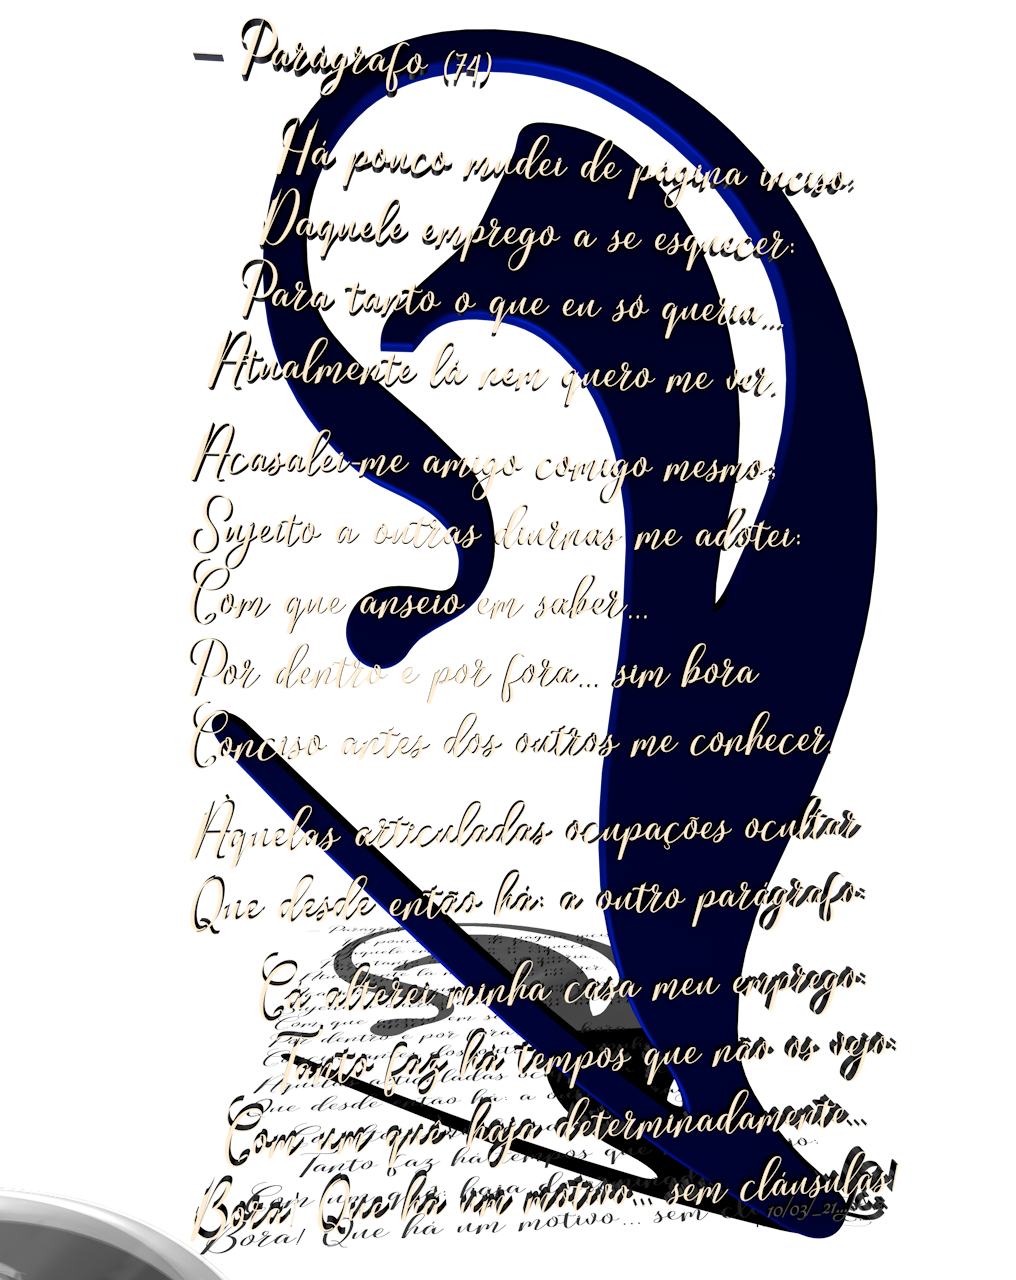 — Parágrafo (74)
Há pouco mudei de página inciso;
Daquele emprego a se esquecer:
Para tanto o que eu só queria...
Atualmente lá nem quero me ver.
Acasalei-me amigo comigo mesmo;
Sujeito a outras diurnas me adotei:
Com que anseio em saber...
Por dentro e por fora... sim bora
Conciso antes dos outros me conhecer.
Àquelas articuladas ocupações ocultar
Que desde então há: a outro parágrafo:
Cá alterei minha casa meu emprego:
Tanto faz há tempos que não os vejo:
Com um quê haja determinadamente...
Bora! Que há um motivo... sem cláusulas!
10/03/_21